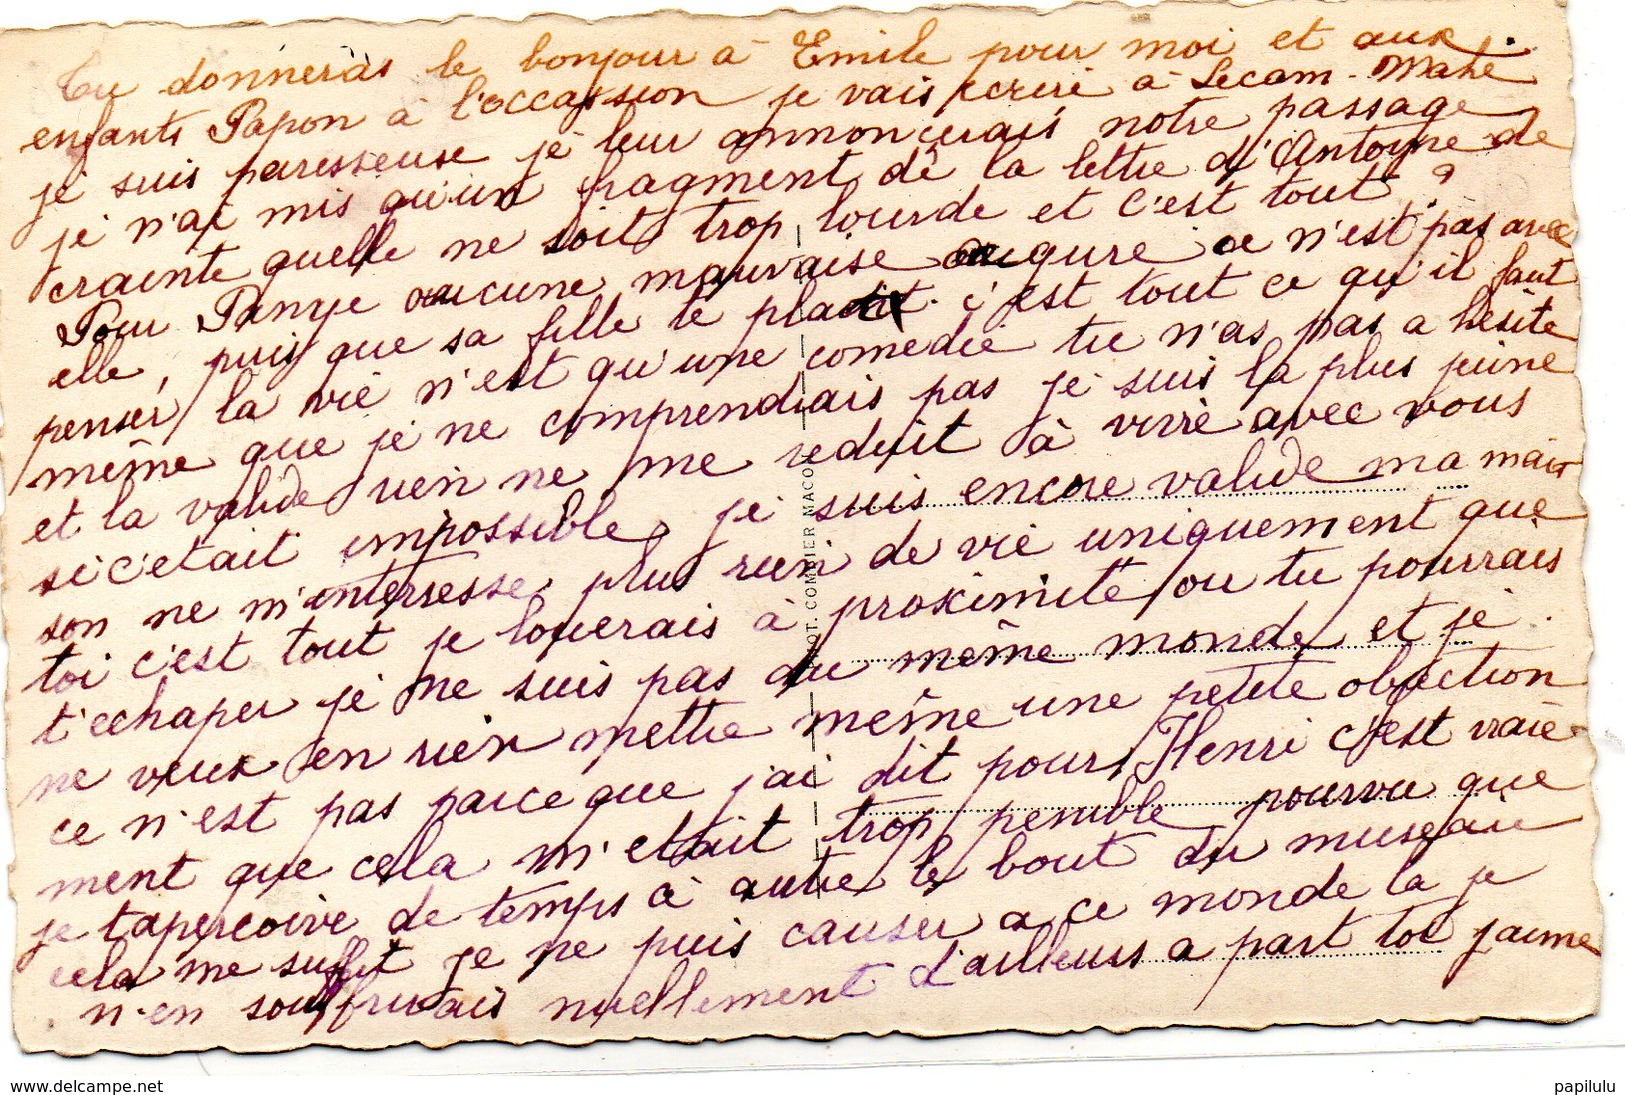 Tu donneras le bonjour à Emile pour moi et aux
enfants Papon à l'occasion je vais ecrire à Lecam-Mahé
je suis paresseuse je leur annoncerais notre passage
je n'ai mis qu'un fragment de la lettre d'Antoine de
crainte quelle ne soit trop lourde et c'est tout ?
Pour aucune mauvaise augure ce n'est pas avec
elle, puis que sa fille te plait. c'est tout ce qu'il faut
penser la vie n'est qu'une comedie tu n'as pas a hésité
même que je ne comprendrais pas je suis la plus jeune
et la valide rien ne me reduit à vivre avec vous
si c'etait impossible, je suis encore valide ma mai
son ne m'interresse plus rien de vie uniquement que
toi c'est tout je louerais à proximité ou tu pourrais
t'echaper je ne suis pas du même monde et je
ne veux en rien mettre même une petite objection
ce n'est pas parce que j'ai dit pour Henri c'est vraie-
ment que cela m'etait trop penible pourvu que
je t'apercoive de temps à autre le bout du museau
cela me suffit je ne puis causer a ce monde la je
n'en souffrirais nuellement. d'ailleurs a part toi j'aime
COMBIER MACON
delcampe.net
papilulu